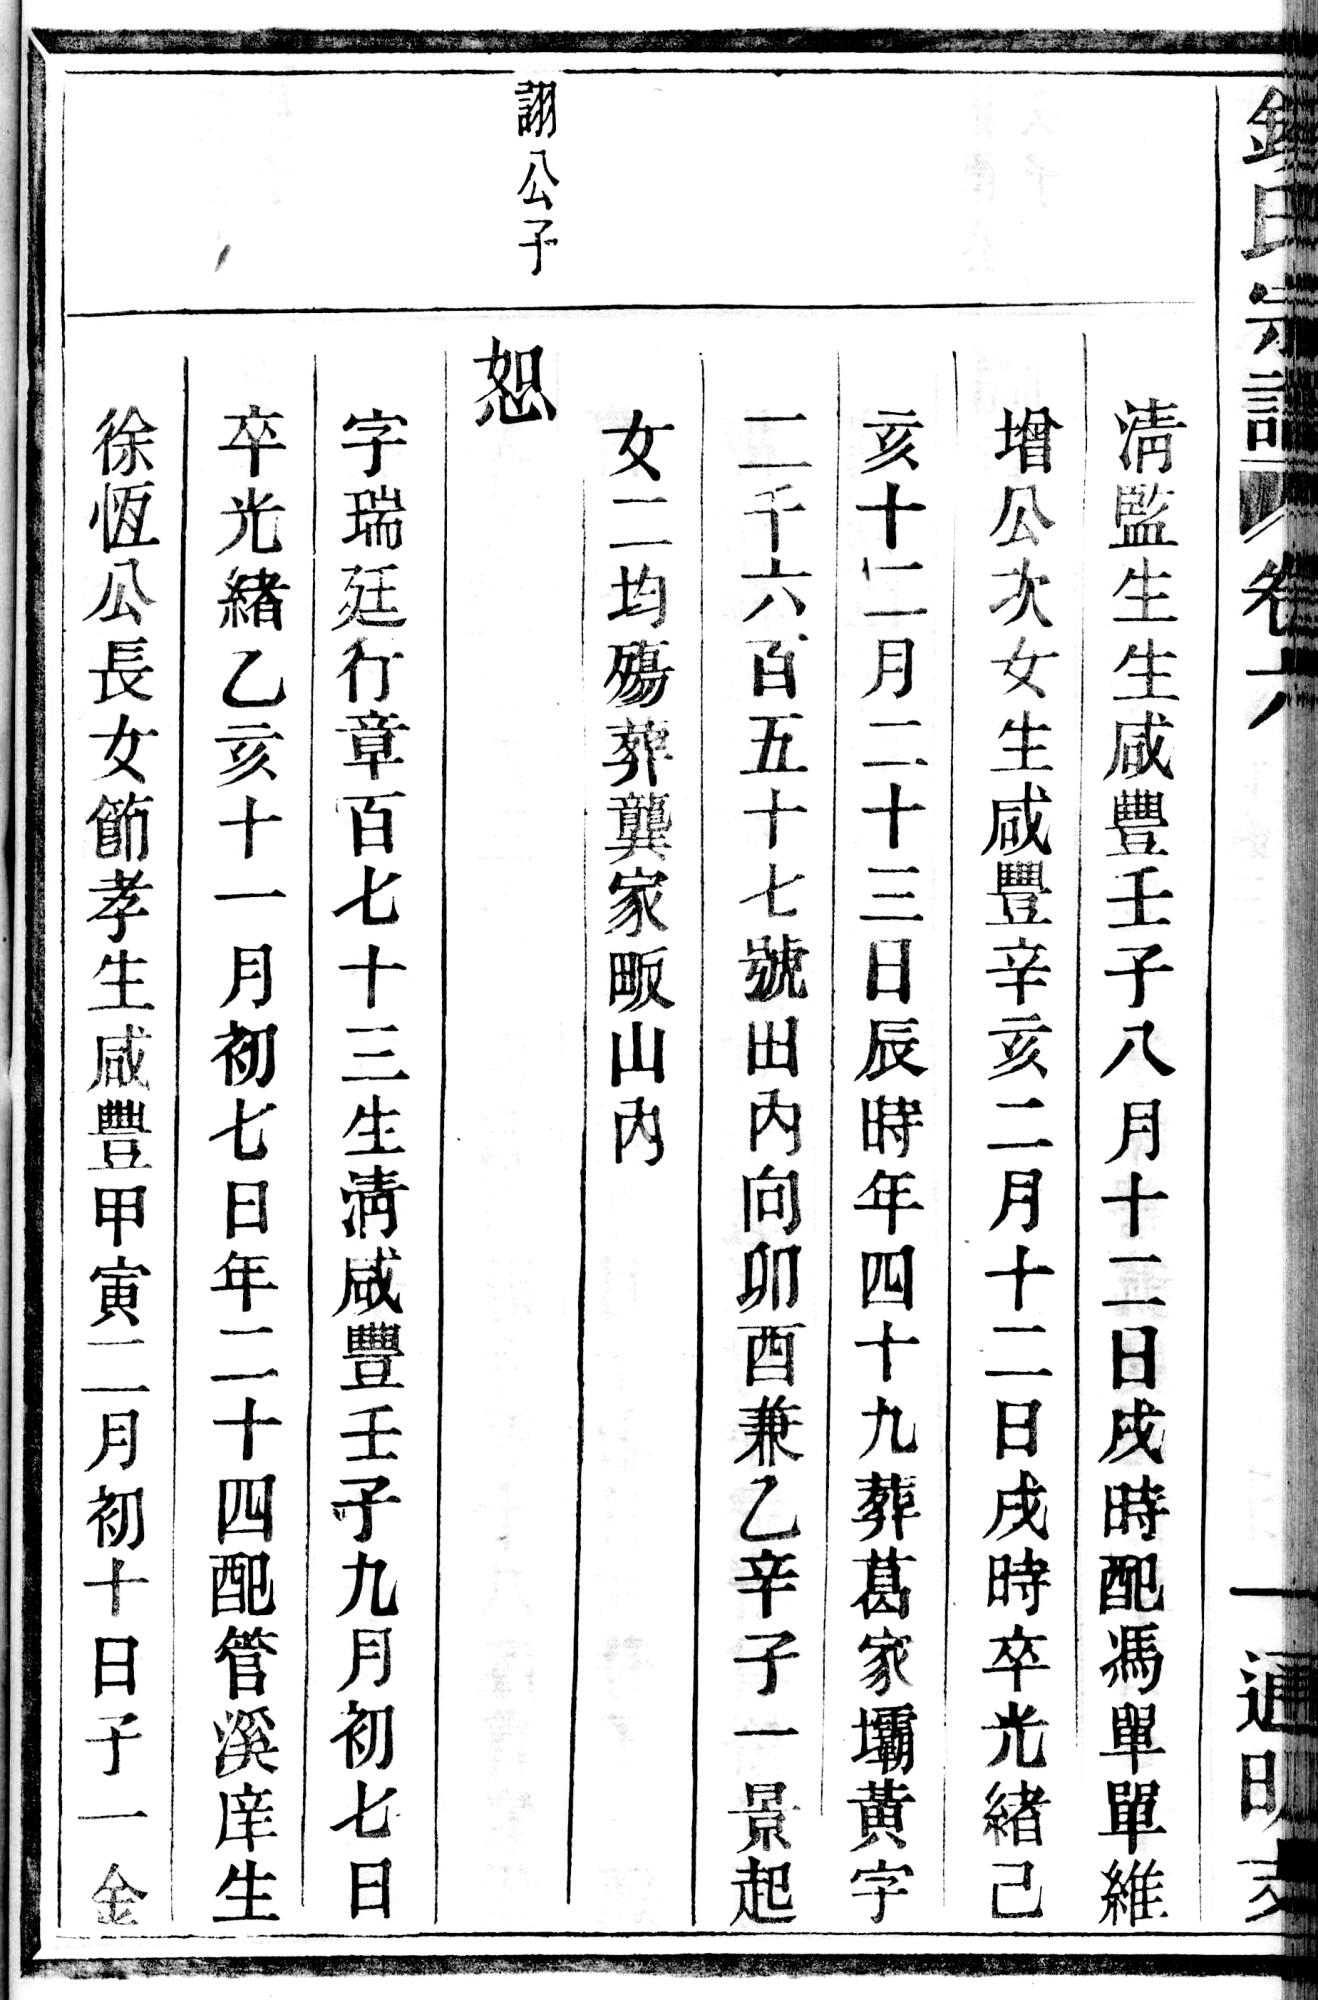 氏宗譜
卷六
一
通明
淸監生生咸豐壬子八月十二日戌時配馮單單維
增公次女生咸豐辛亥二月十二日戌時卒光緒己
亥十二月二十三日辰時年四十九葬葛家壩黃字
二千六百五十七號田內向卯酉兼乙辛子一景起
女二均殤葬龔家畈山內
詡公子
恕
字瑞廷行章百七十三生淸咸豐壬子九月初七日
卒光緒乙亥十一月初七日年二十四配管溪庠生
徐恆公長女節孝生咸豐甲寅二月初十日子一金